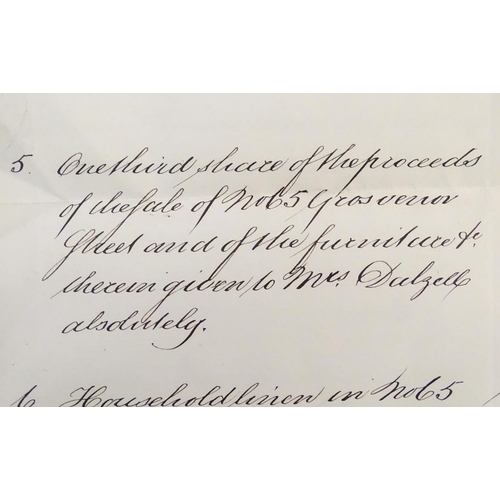 5. One third share of the proceeds
of the sale of No 65 Grosvenor
Street and of the furniture &c.
therein given to Mrs Dalzell
absolutely.
6 Household linen in No 65